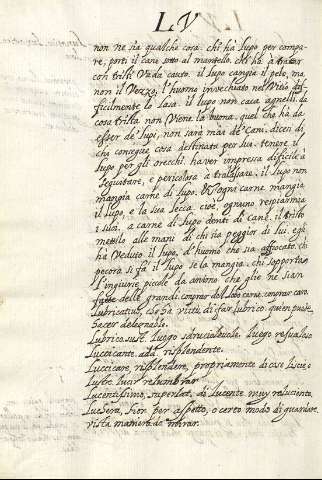 L V
non ne sia qualche cosa. chi hà lupo per compa-
re, porti il cane sotto al mantello. chi hà à tratar
con tristi Vada cauto. il lupo cangia il pelo, ma
non il Vezzo, l'huomo invechiato nel Vitio dif-
ficilmente lo lasa. il lupo non caca agnelli. da
cosa trista non Viene la buona. quel che hà da
esser de' lupi, non sarà mai de' Cani. dicesi di
chi consegue cosa destinata per lui. tenere il
lupo per gli orecchi. haver impresa dificile à
seguitare, e pericolosa à tralasare. il lupo non
mangia carne di lupo. ogni carne mangia
il lupo, e la sua lecca. cioè, ognuno respiarmia
i suoi. a carne di lupo denti di cane. il tristo
metilo alle mani di chi sia peggior di lui. egli
hà Veduto il lupo. d'huomo che sia affocato. chi
pecora si fà il lupo se la mangia. chi sopporta
l'ingiurie picole dà animo che glie ne sian
fatte delle grandi.
Lubricativo, ch'hà Virtù di far lubrico. quien puede
hacer deleznable.
Lubrico. sust. Luogo sdrucioleuole. Luego resualoso
Luccicante. add. risplendente.
Luccicare, risplendere, propriamente di cose liscie, o
Lustre. lucir relumbrar.
Lucentissimo, superlat. di Lucente. muy reluciente.
Luchera, sior per aspetto, o certo modo di guardare.
vista manera de mirar.